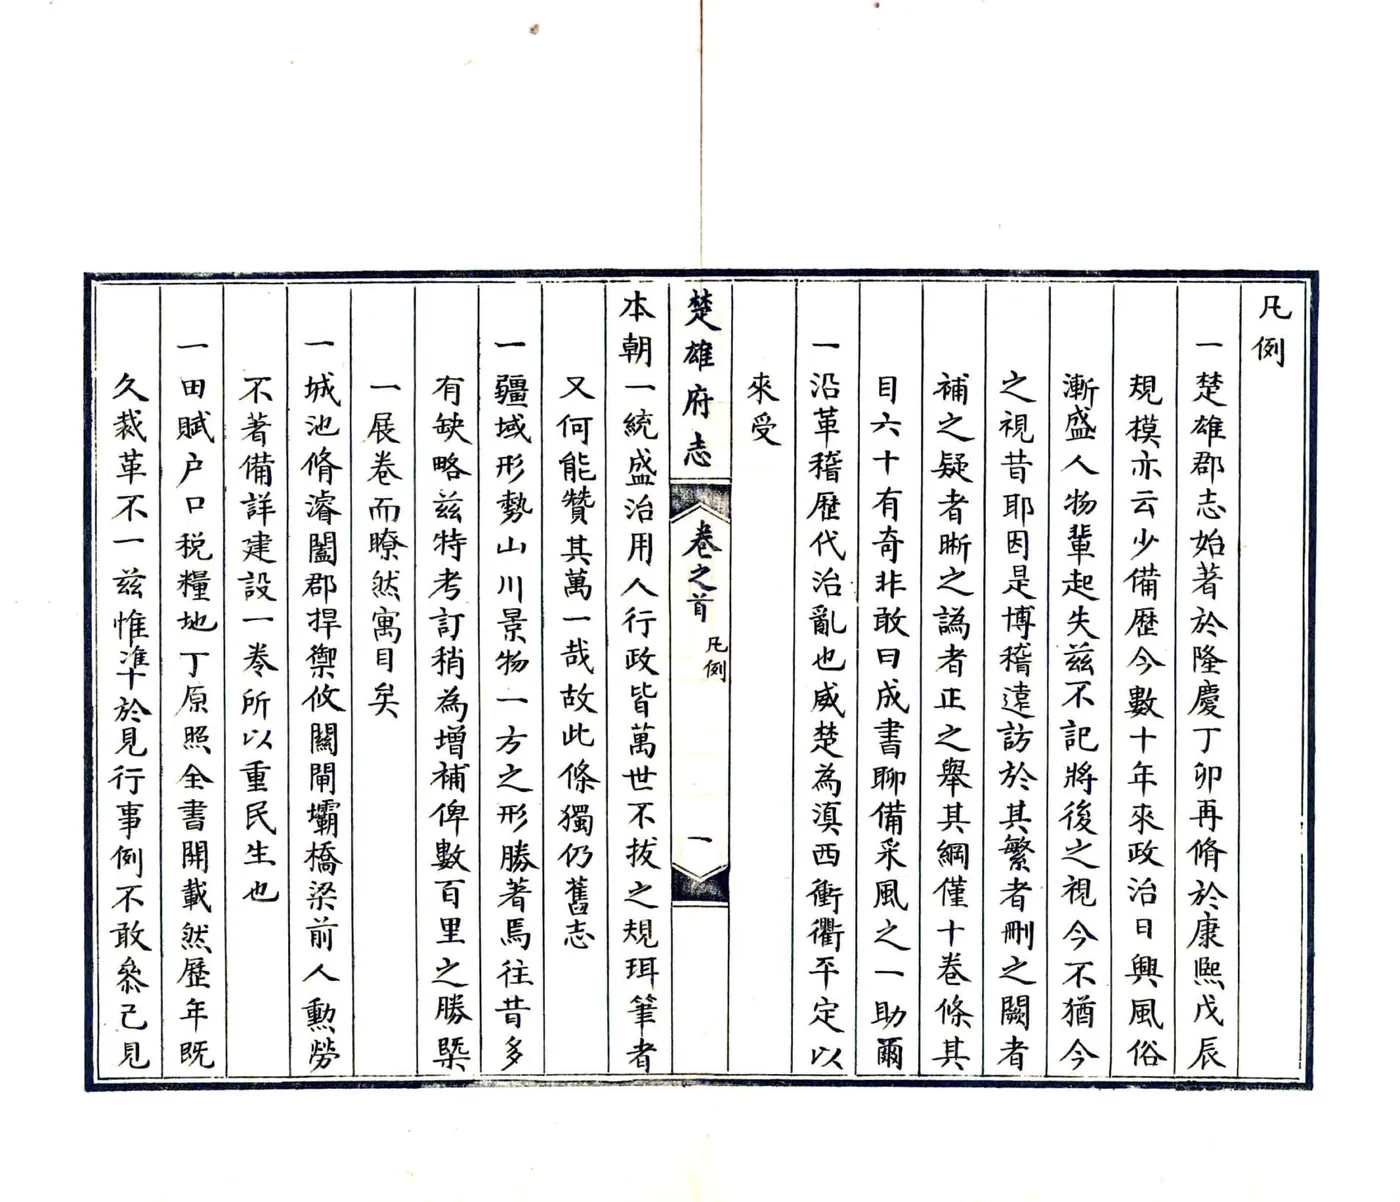 凡例
一楚雄郡志始著於隆慶丁卯再脩於康熙戊辰
規模亦云少備歷今數十年來政治日興風俗
漸盛人物輩起失茲不記將後之視今不猶今
之視昔耶因是博稽遠訪於其繁者刪之闕者
補之疑者晰之譌者正之舉其綱僅十卷條其
目六十有奇非敢曰成書聊備采風之一助爾
一沿革稽歷代治亂也威楚為滇西衝衢平定以
來受
楚雄府志
卷之首
凡例
一
本朝一統盛治用人行政皆萬世不拔之規珥筆者
又何能贊其萬一哉故此條獨仍舊志
一疆域形勢山川景物一方之形勝著焉往昔多
有缺略茲特考訂稍為增補俾數百里之勝槩
一展卷而瞭然寓目矣
一城池脩濬闔郡捍禦攸關閘壩橋梁前人勳勞
不著備詳建設一卷所以重民生也
一田賦户口稅糧地丁原照全書開載然歷年既
久裁革不一茲惟準於見行事例不敢叅己見